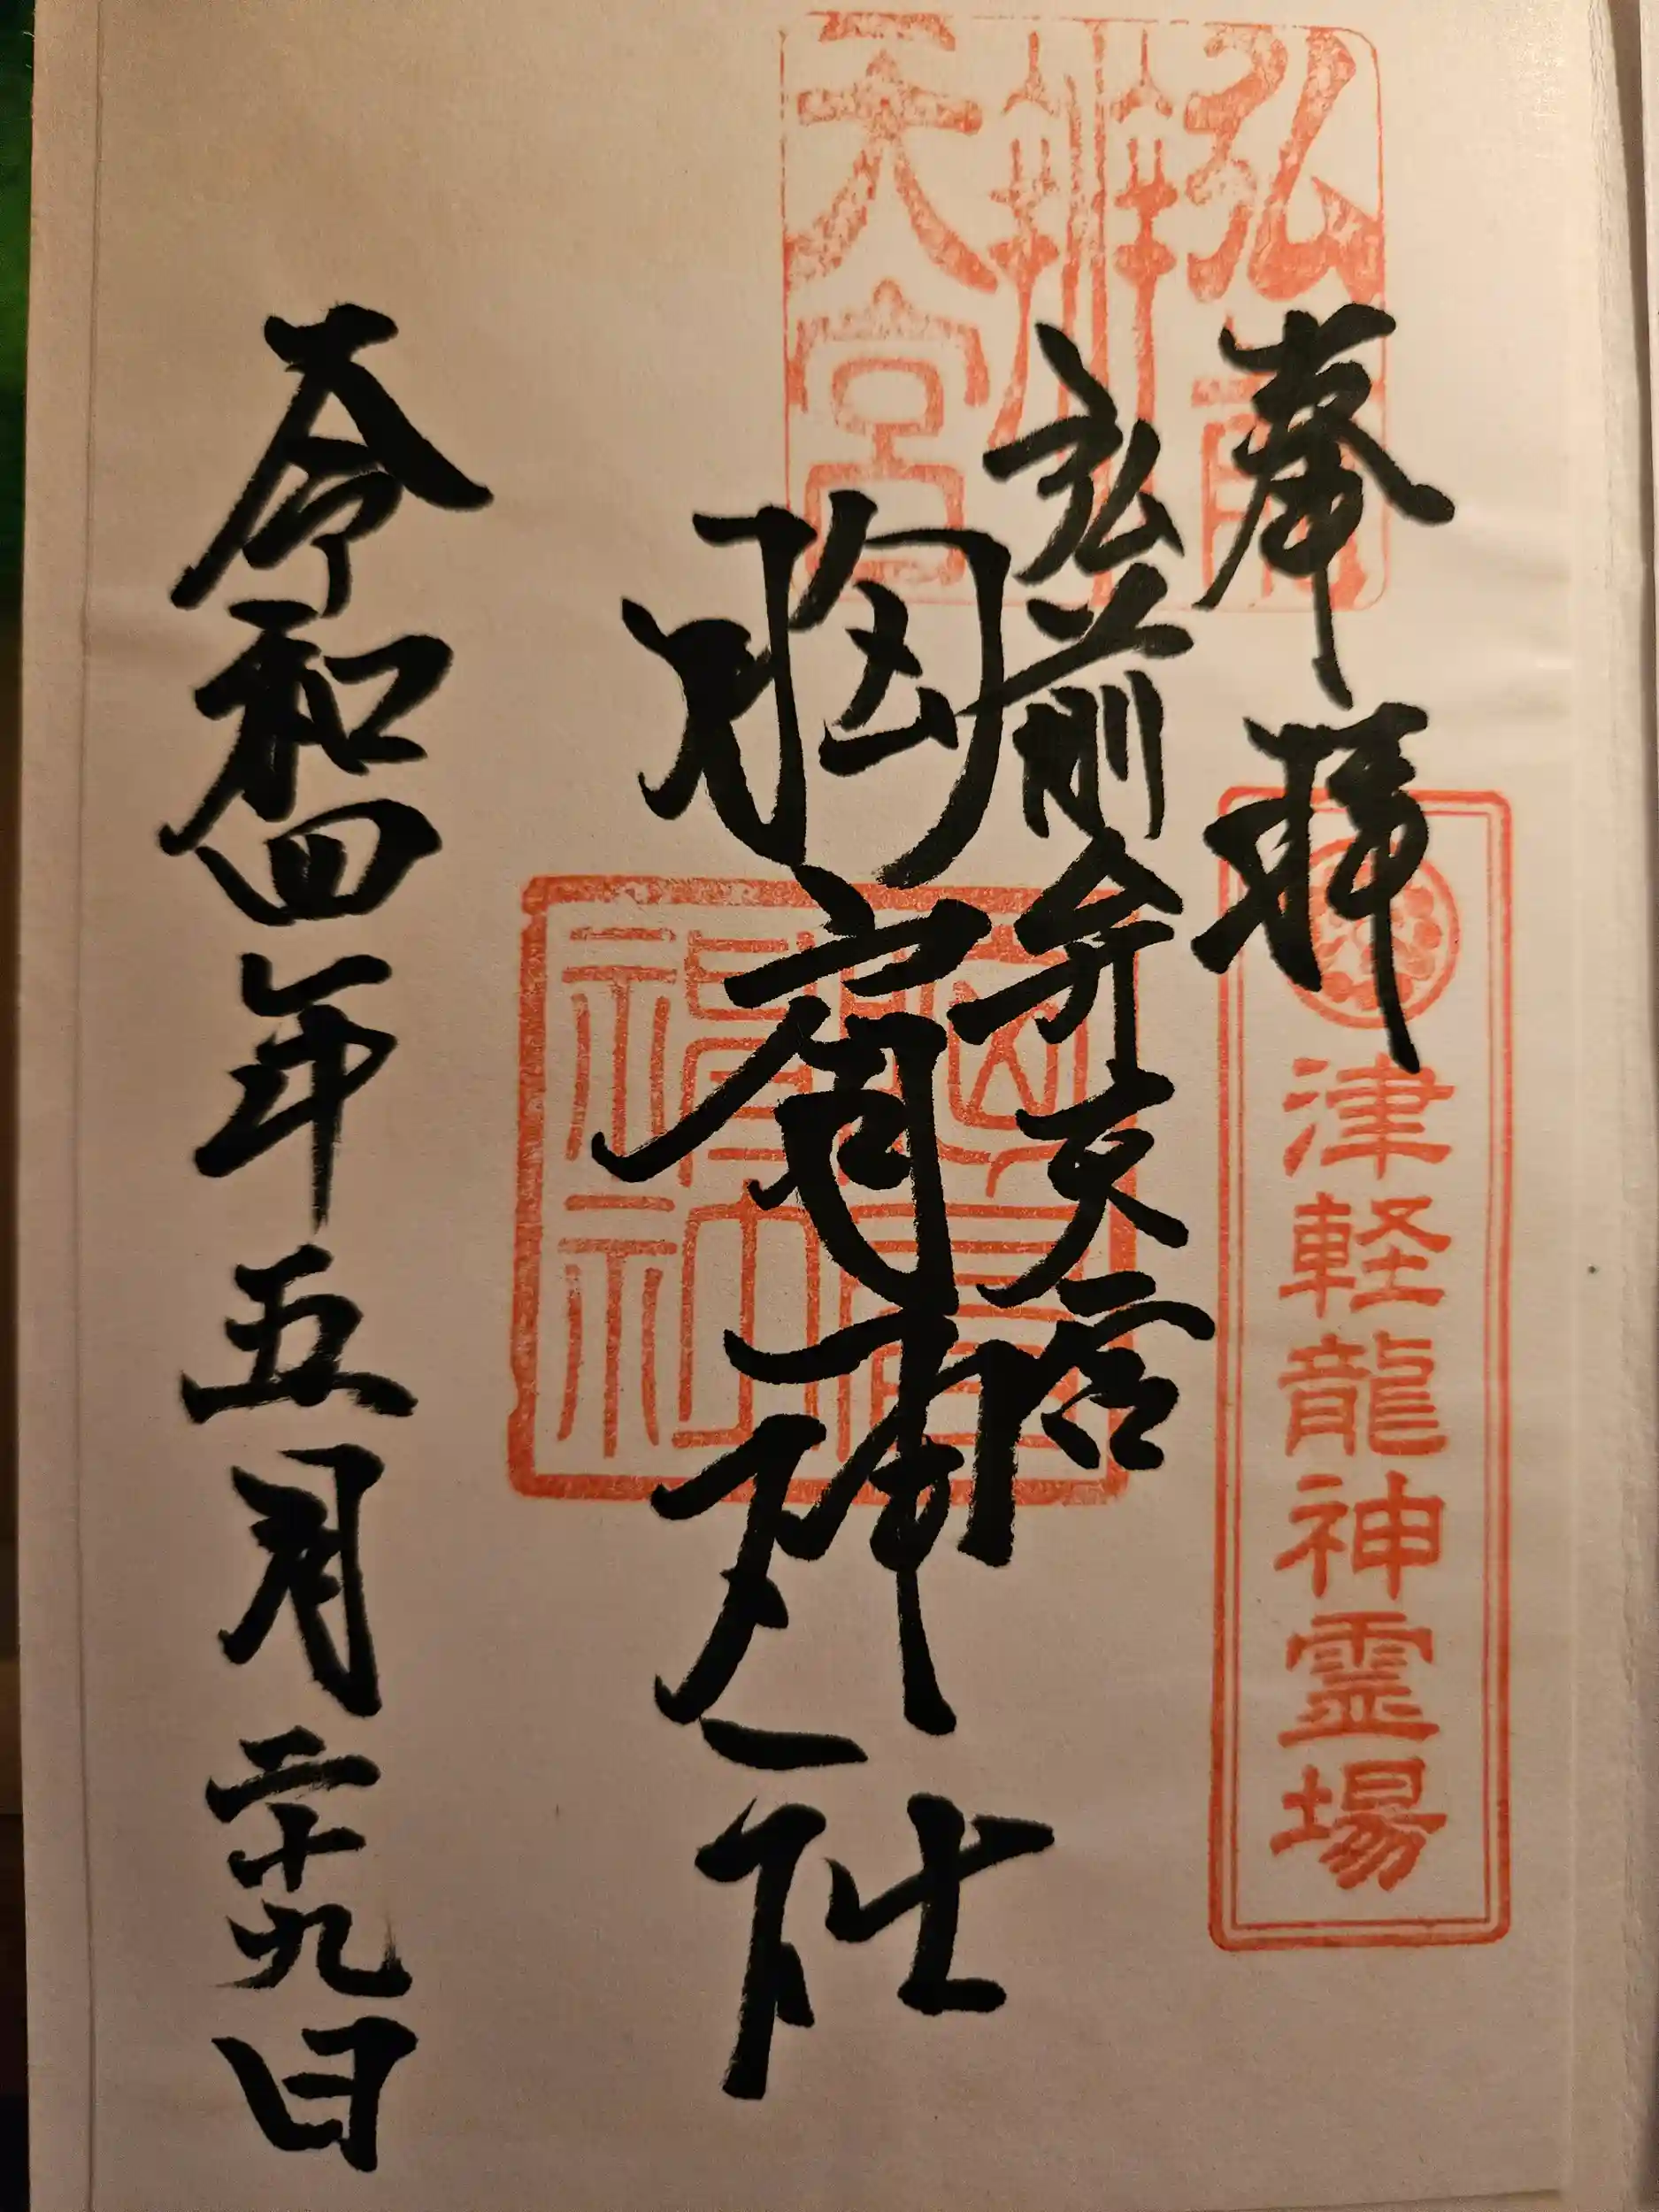 奉拝
弘前辨天宮
津軽龍神霊場
弘前弁天宮
胸肩神社
令和四年五月二十九日